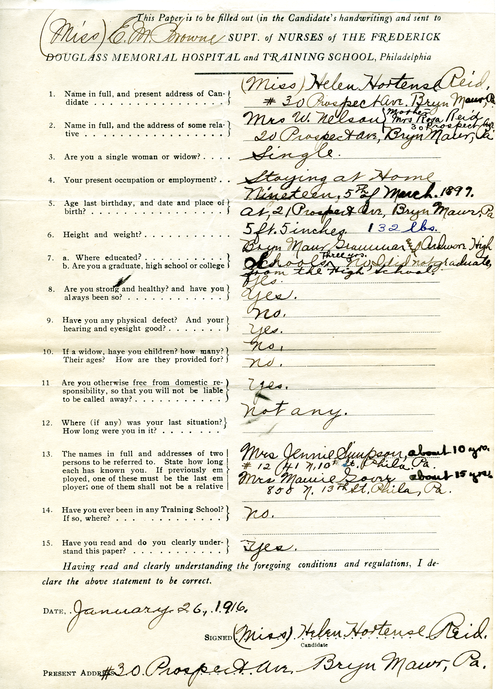 This Paper is to be filled out (in the Candidate's handwriting) and sent to
(Miss) E. M. Browne SUPT. of NURSES of THE FREDERICK
DOUGLASS MEMORIAL HOSPITAL and TRAINING SCHOOL, Philadelphia
1. Name in full, and present address of Can-
didate
(Miss) Helen Hortense Reid,
# 30 Prospect Av. Bryn Mawr, Pa
2. Name in full, and the address of some rela-
tive
Mrs W. Nelson
Mother Mrs Rosa Reid
30 Prospect Av.
20 Prospect Av, Bryn Mawr, Pa
3. Are you a single woman or widow?
Single.
4. Your present occupation or employment?
Staying at Home
5. Age last birthday, and date and place of
birth?
Nineteen, 5th of March, 1897.
at, 21 Prospect Av, Bryn Mawr, Pa
6. Height and weight?
5 ft. 5 inches 132 lbs.
7. a. Where educated?
b. Are you a graduate, high school or college
Bryn Mawr Grammar & High
Schools, Three yrs. No, I did not graduate,
from the High School.
8. Are you strong and healthy? and have you
always been so?
Yes.
Yes.
9. Have you any physical defect? And your
hearing and eyesight good?
No.
Yes.
10. If a widow, have you children? how many?
Their ages? How are they provided for?
No.
No.
11 Are you otherwise free from domestic re-
sponsibility, so that you will not be liable
to be called away?
Yes.
12. Where (if any) was your last situation?
How long were you in it?
Not any.
13. The names in full and addresses of two
persons to be referred to. State how long
each has known you. If previously em
ployed, one of these must be the last em
ployer; one of them shall not be a relative
Mrs Jennie Simpson, about 10 yrs.
# 12 St, Phila, Pa.
Mrs about 15 yrs.
13th St, Phila, Pa.
14. Have you ever been in any Training School?
If so, where?
No.
15. Have you read and do you clearly under-
stand this paper?
Yes.
Having read and clearly understanding the foregoing conditions and regulations, I de-
clare the above statement to be correct.
DATE, January 26, 1916.
SIGNED (Miss) Helen Hortense Reid.
Candidate
PRESENT ADDRESS #30 Prospect Av, Bryn Mawr, Pa.